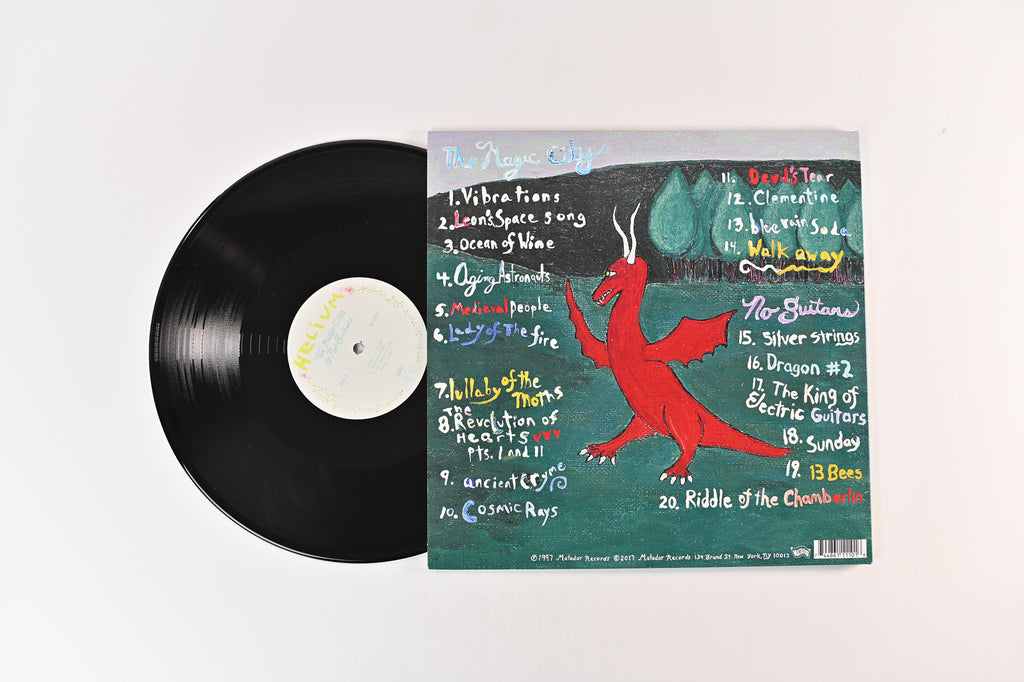 HELIUM
The Magic City
& No Guitars
The Magic City
1. Vibrations
2. Leon's Space song
3. Ocean of Wine
4. Aging Astronauts
5. Medieval people
6. Lady of The fire
7. lullaby of the
Moths
8. The Revolution of
Hearts vvv
pts. I and II
9. ancient cryme
10. Cosmic Rays
11. Devil's Tear
12. Clementine
13. blue rain Soda
14. Walk away
No Guitars
15. Silver strings
16. Dragon #2
17. The King of
Electric Guitars
18. Sunday
19. 13 Bees
20. Riddle of the Chamberlin
© 1997 Matador Records © 2017 Matador Records 134 Grand St. New York, NY 10013